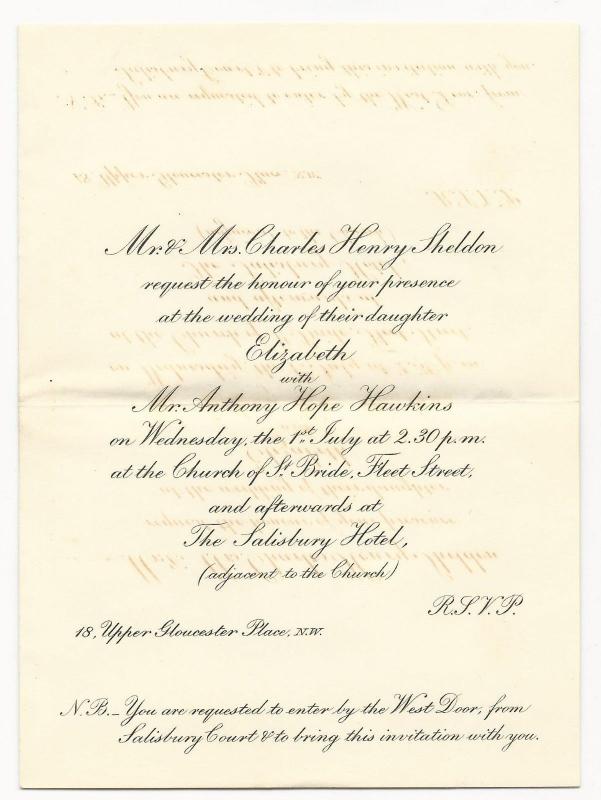 Mr. & Mrs. Charles Henry Sheldon
request the honour of your presence
at the wedding of their daughter
Elizabeth
with
Mr. Anthony Hope Hawkins
on Wednesday, the 1st. July at 2.30 p.m.
at the Church of St. Bride, Fleet Street,
and afterwards at
The Salisbury Hotel,
(adjacent to the Church)
R.S.V.P.
18, Upper Gloucester Place, N.W.
N.B. – You are requested to enter by the West Door, from
Salisbury Court & to bring this invitation with you.